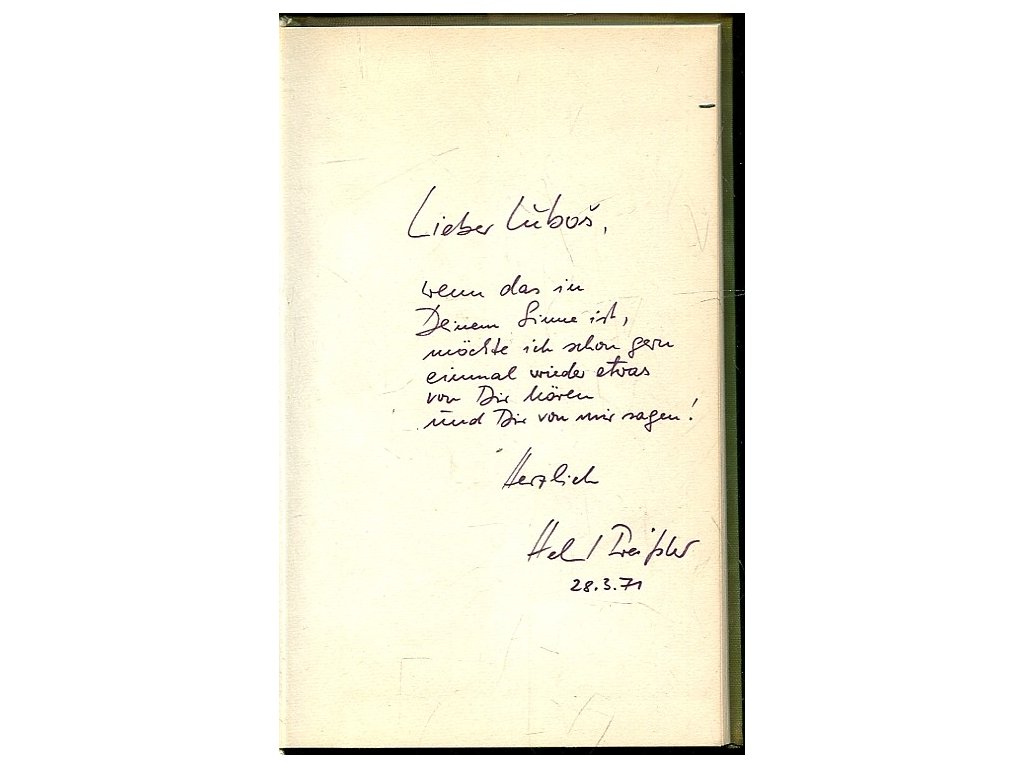 Lieber Luboš,
wenn das in
Deinem Sinne ist,
möchte ich schon gern
einmal wieder etwas
von Dir hören
und Dir von mir sagen!
Herzlich
28.3.71